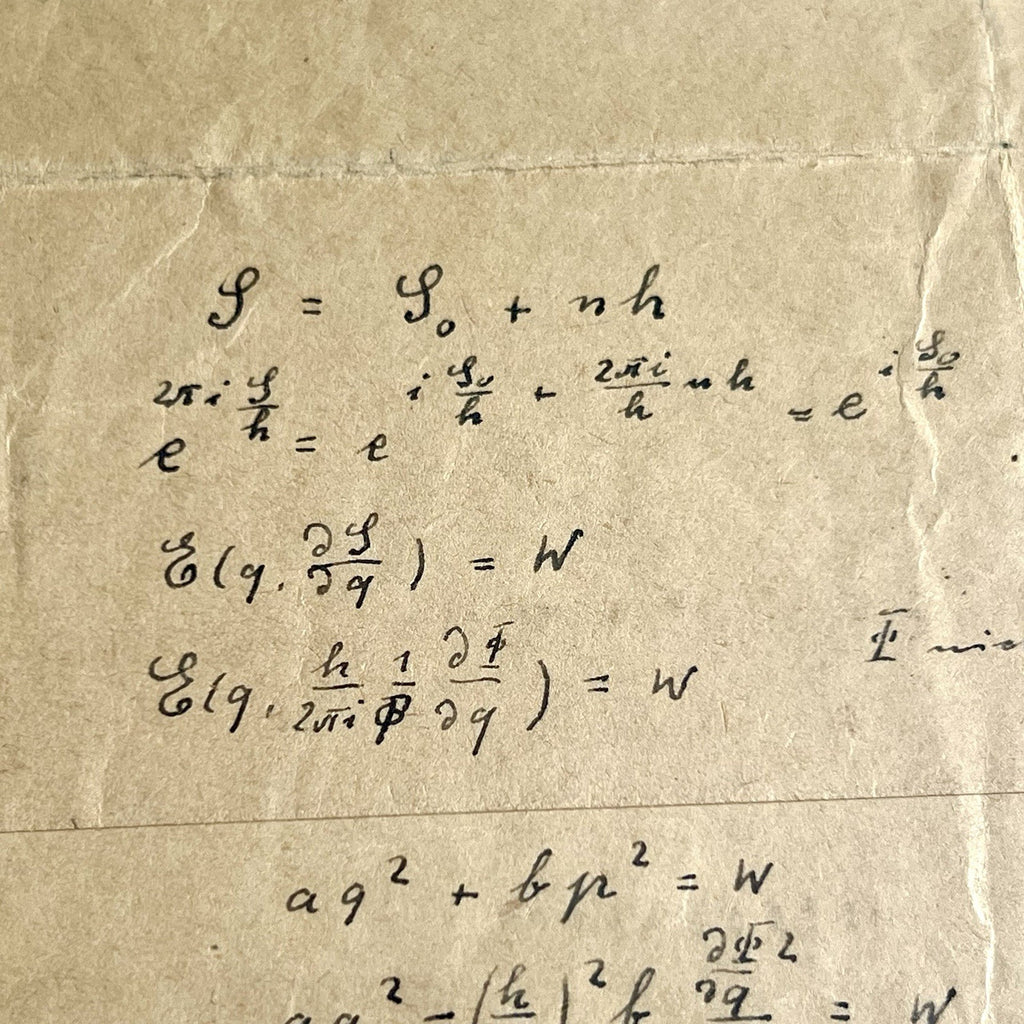 S = S₀ + nh
e^{2πi S/h} = e^{i S₀/h + 2πi/h nh} = e^{i S₀/h}
E(q, ∂S/∂q) = W
E(q, h/2πi 1/Φ ∂Φ/∂q) = W
Φ
aq² + bp² = W
aq² - (h/ )² b ∂Φ²/∂q = W